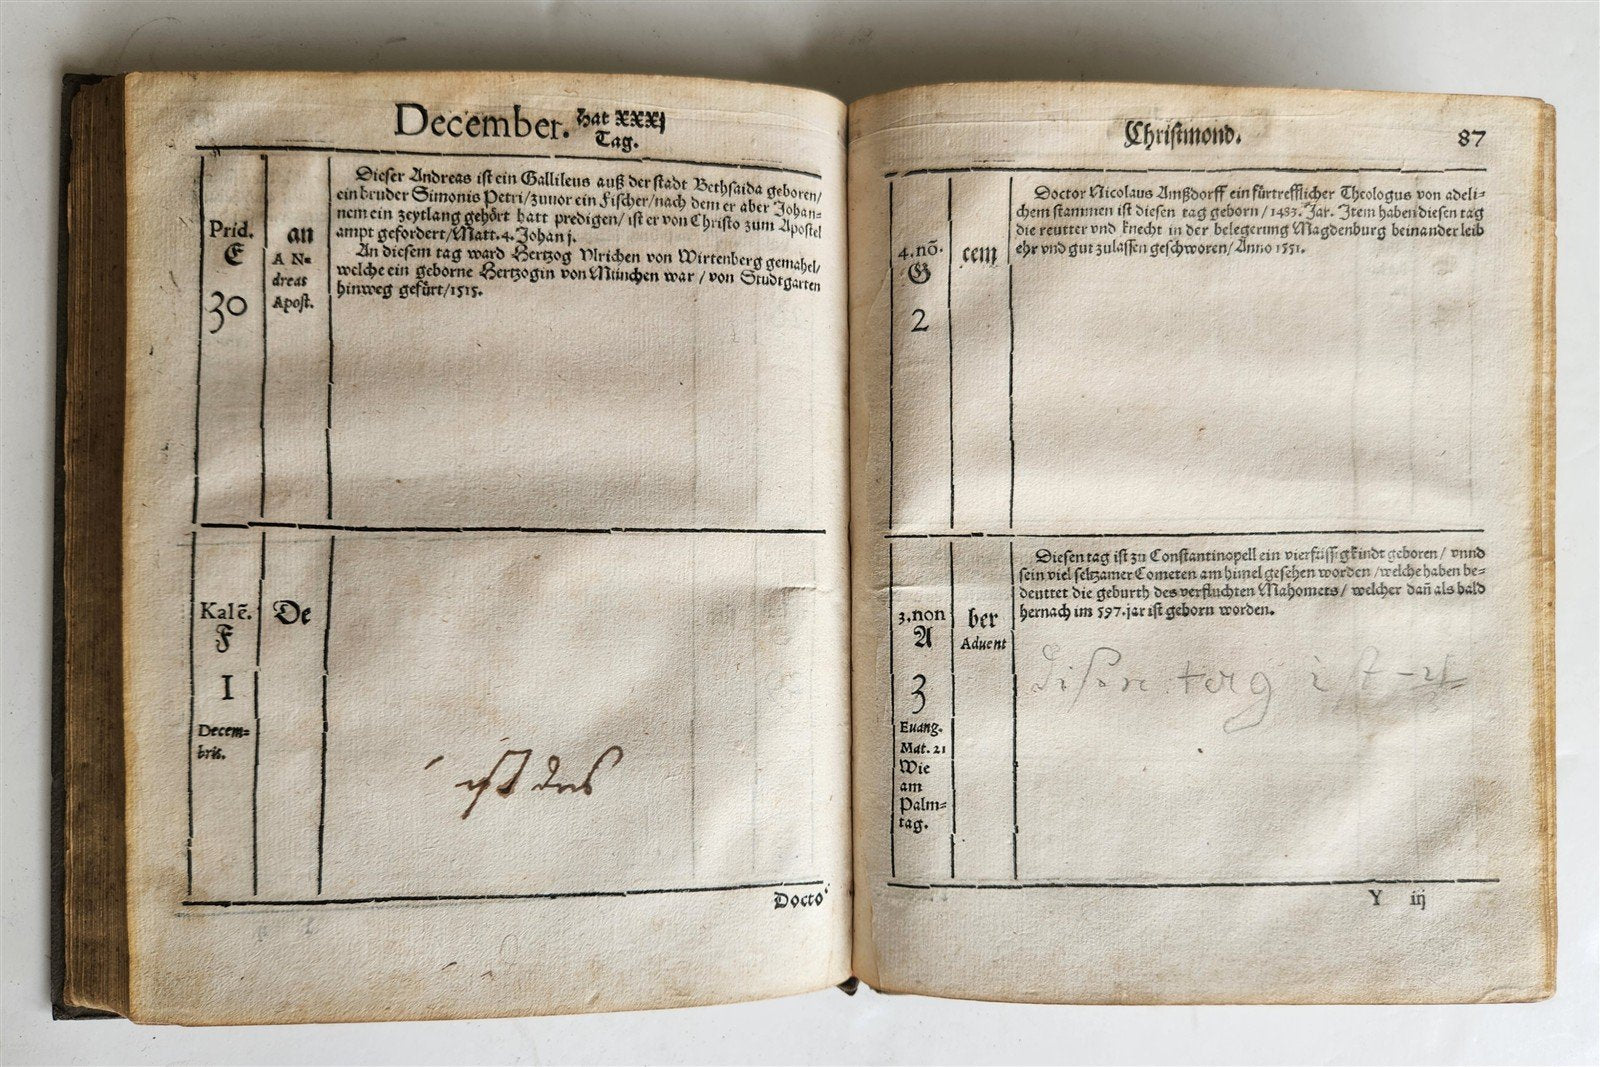 December. hat xxxj
Tag.
Prid.
E
30
an
A N=
dreas
Apost.
Dieser Andreas ist ein Gallileus auß der stadt Bethsaida geboren/
ein bruder Simonis Petri/zuuor ein Fischer/nach dem er aber Johan=
nem ein zeytlang gehört hatt predigen/ist er von Christo zum Apostel
ampt gefordert/Matt. 4. Johan j.
An diesem tag ward Hertzog Vlrichen von Wirtenberg gemahel/
welche ein geborne Hertzogin von München war/von Studtgarten
hinweg gefürt/1515.
Kalē.
F
I
Decem=
bris.
De
ist des
Docto
Christmond. 87
4. nō.
G
2
cem
Doctor Nicolaus Amßdorff ein fürtrefflicher Theologus von adeli=
chem stammen ist diesen tag geborn/1483. Jar. Item haben diesen tag
die reutter vnd knecht in der belegerung Magdenburg beinander leib
ehr vnd gut zulassen geschworen/Anno 1551.
3. non
A
3
Euang.
Mat. 21
Wie
am
Palm=
tag.
ber
Aduent
Diesen tag ist zu Constantinopell ein vierfüssig kindt geboren/ vnnd
sein viel seltzamer Cometen am himel gesehen worden/welche haben be=
deuttet die geburth des verfluchten Mahomets/ welcher dañ als bald
hernach im 597. jar ist geborn worden.
Y iij